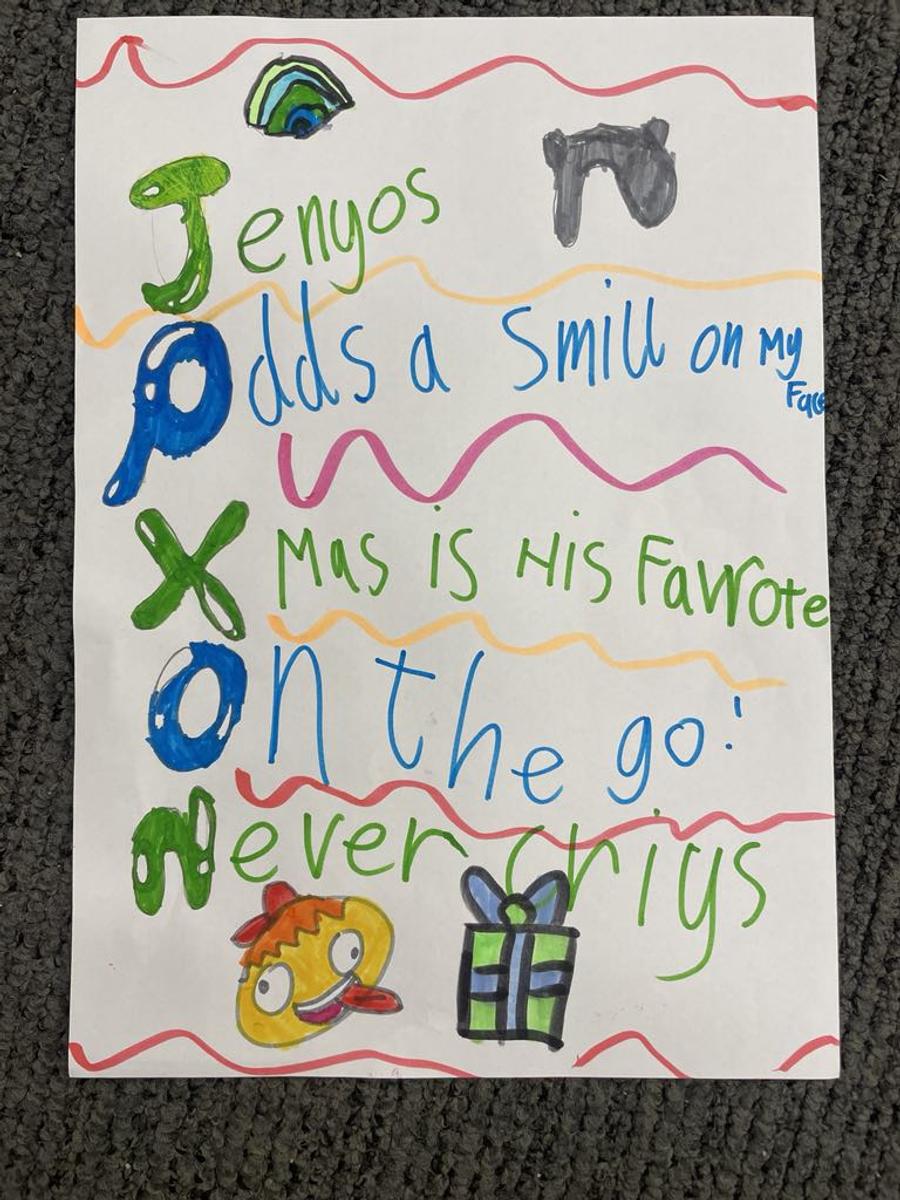 Jenyos
adds a smill on my
Face
X Mas is His Favrote
On the go!
Never criys